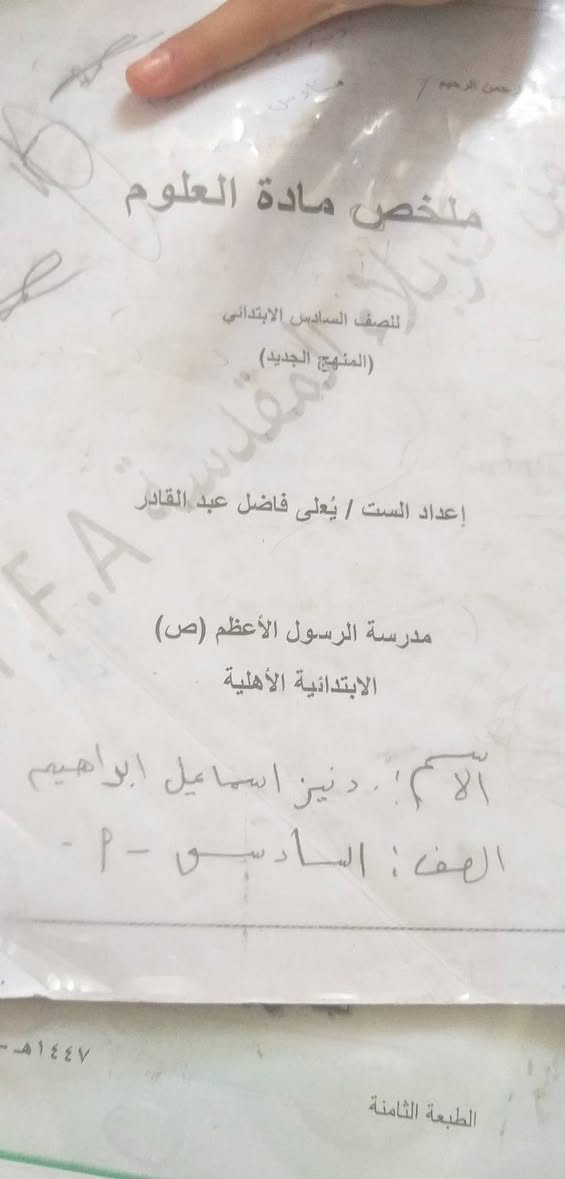 حمن الرحيم /
ملخص مادة العلوم
للصف السادس الابتدائي
(المنهج الجديد)
إعداد الست / يُعلى فاضل عبد القادر
كربلاء المقدسة F.A
مدرسة الرسول الأعظم (ص)
الابتدائية الأهلية
الاسم: دنيز اسماعيل ابراهيم
الصف: السادس - أ -
١٤٤٧هـ -
الطبعة الثامنة